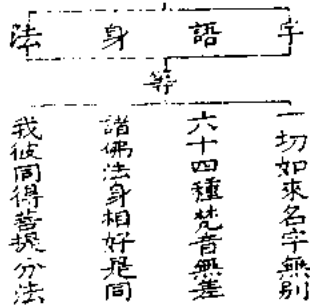 字
語
身
法
等
一切如來名字無別
六十四種梵音無差
諸佛法身相好是同
我彼同得菩提分法